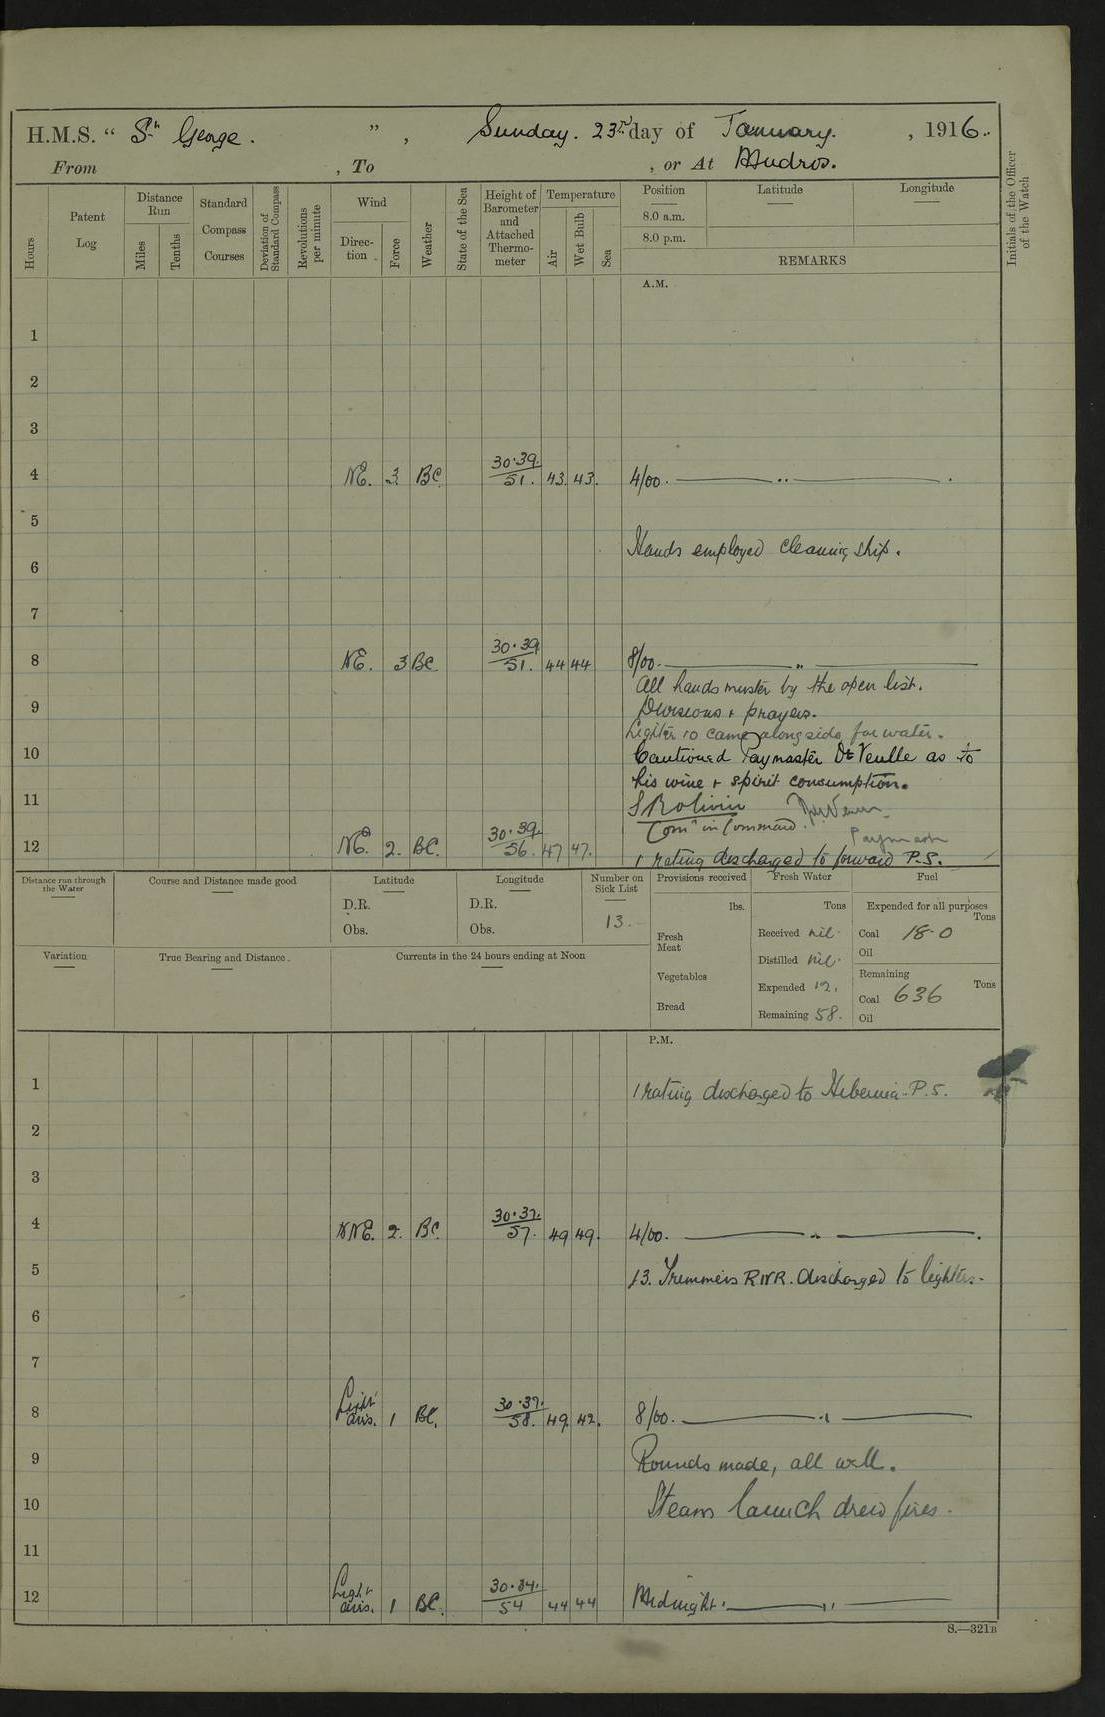 H.M.S. " St. George. " , Sunday. 23rd day of January. , 1916.
From , To , or At Mudros.
Hours
Patent Log
Distance Run
Miles
Tenths
Standard Compass Courses
Deviation of Standard Compass
Revolutions per minute
Wind
Direction
Force
Weather
State of the Sea
Height of Barometer and Attached Thermometer
Temperature
Air
Wet Bulb
Sea
Position
8.0 a.m.
8.0 p.m.
Latitude
Longitude
REMARKS
Initials of the Officer of the Watch
A.M.
1
2
3
4 NE. 3 BC. 30.39. 51. 43. 43. 4/00. ——— " ——— .
5
Hands employed cleaning ship.
6
7
8 NE. 3 BC. 30.39 51. 44 44 8/00. ——— " ———
All hands muster by the open list.
9 Divisions + prayers.
Lighter 10 came alongside for water.
10 Cautioned Paymaster De Veulle as to
his wine + spirit consumption.
11
Comr in Command.
Paymaster
12 NE. 2. BC. 30.39. 56. 47 47. 1 rating discharged to forward P.S.
Distance run through the Water
Course and Distance made good
Latitude
D.R.
Obs.
Longitude
D.R.
Obs.
Number on Sick List
13.
Provisions received
lbs.
Fresh Meat
Vegetables
Bread
Fresh Water
Tons
Received nil.
Distilled nil.
Expended 12.
Remaining 58.
Fuel
Expended for all purposes
Tons
Coal 18.0
Oil
Remaining
Tons
Coal 636
Oil
Variation
True Bearing and Distance.
Currents in the 24 hours ending at Noon
P.M.
1 1 rating discharged to Hibernia P.S.
2
3
4 NNE. 2. BC. 30.37. 57. 49 49. 4/00. ——— " ——— .
5 13. Trimmers RNR. discharged to lighter.
6
7
8 Light airs. 1 BC. 30.37. 58. 49. 42. 8/00. ——— " ———
9 Rounds made, all well.
10 Steam launch drew fires.
11
12 Light airs. 1 BC. 30.34. 54 44 44 Midnight. ——— " ———
S.—321B